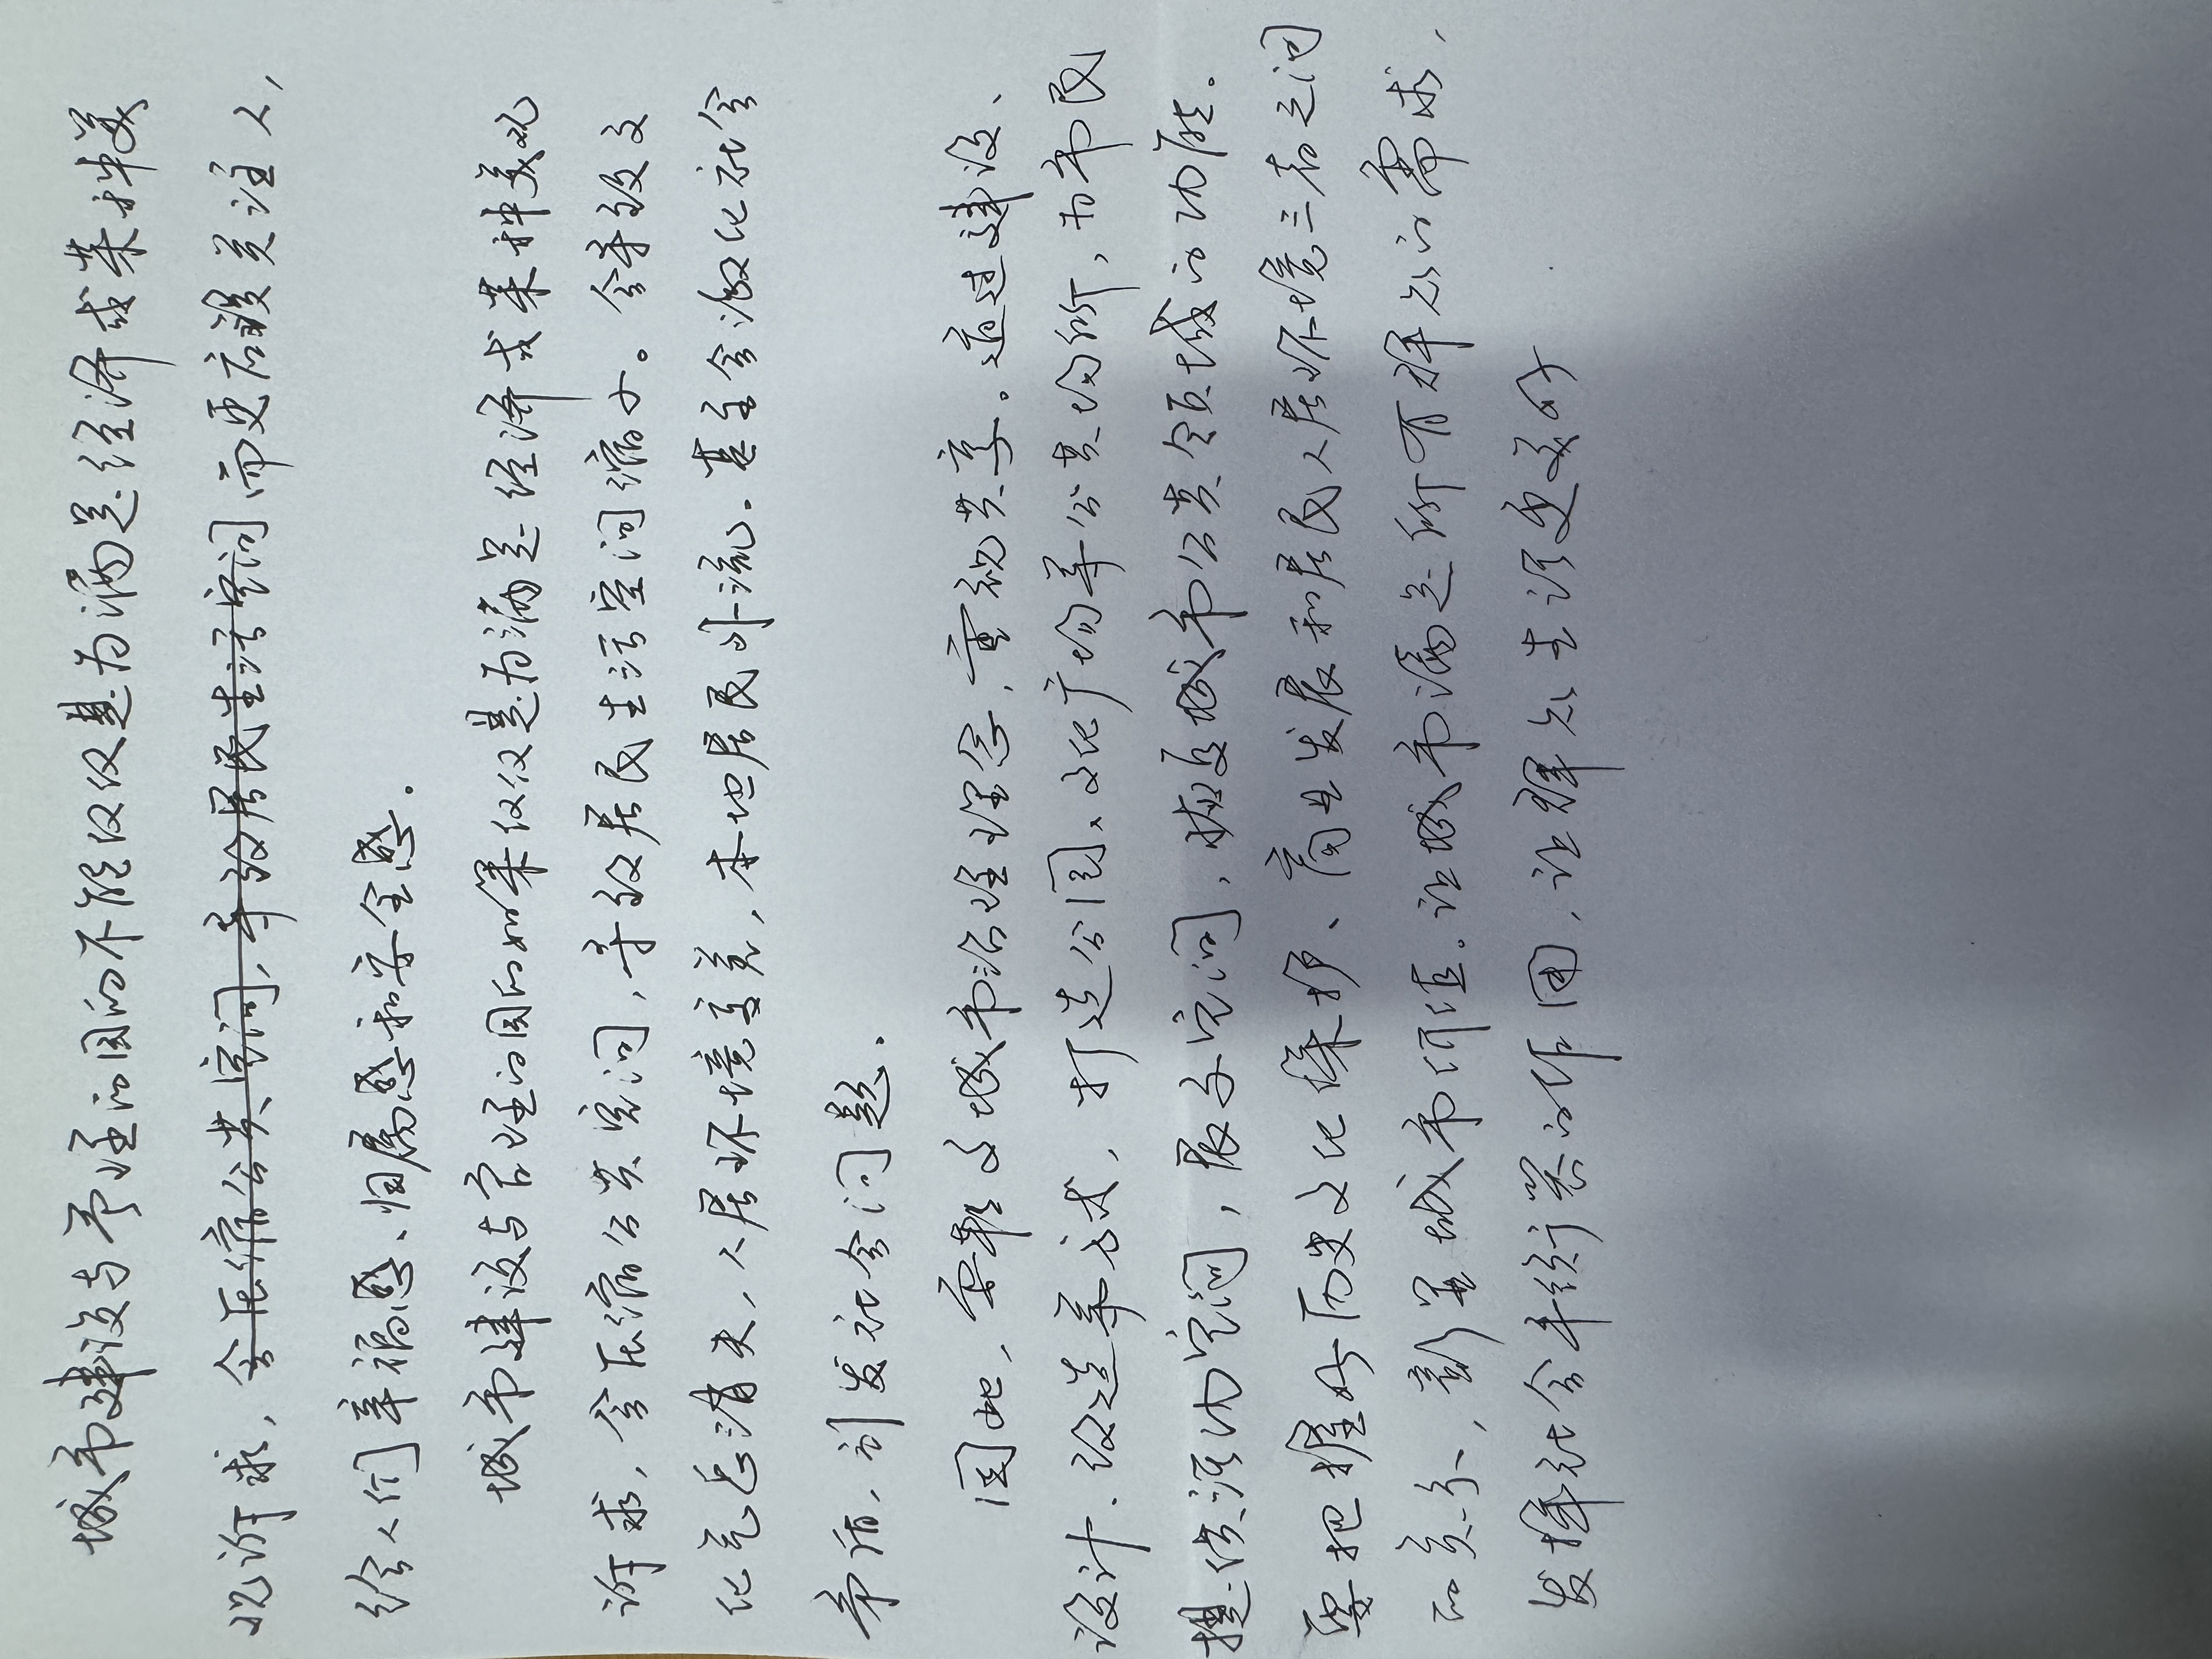 城市建设与管理的目的不能仅仅是为满足经济或某种美
观诉求，会压缩公共空间，导致居民生活空间而更应该关注人，
给人们幸福感、归属感和安全感。
城市建设与管理的目的如果仅仅是为满足经济或某种美观
诉求，会压缩公共空间，导致居民生活空间缩小。会导致文
化气息消失，人居环境变差，本地居民外流。甚至会激化社会
矛盾，引发社会问题。
因此，要转变城市治理理念，重视共享。通过建设、
设计、改造等方式，打造公园、文化广场等公共场所，为市民
提供活动空间，展示空间，恢复城市公共领域的功能。
要把握好历史文化保护、商业发展和居民人居环境三者之间
的关系，彰显城市价值。让城市满足所有群众的需求，
发挥社会平衡器的作用，让群众生活更美好